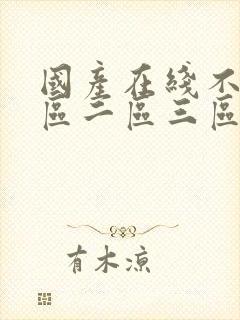 國產在綫不
區二區三區
有木涼